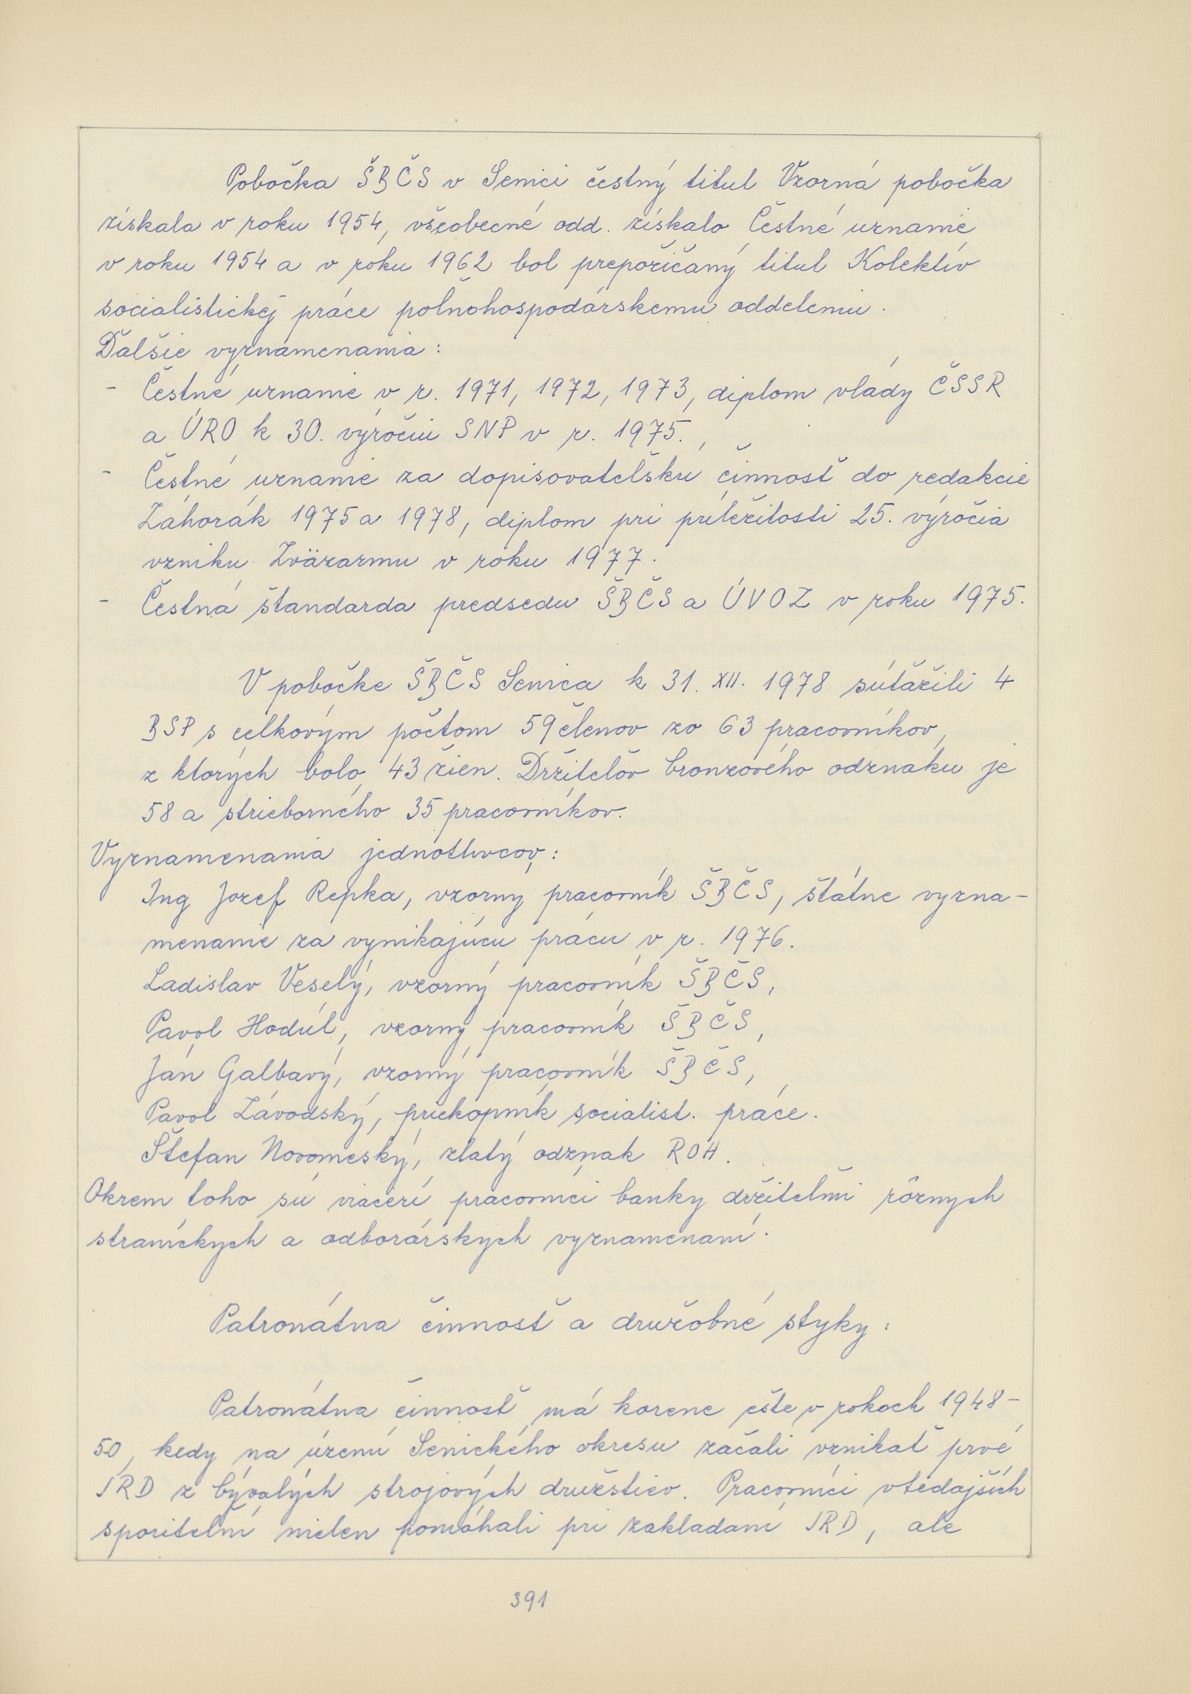 Pobočka ŠBČS v Senici čestný titul Vzorná pobočka
získala v roku 1954, všeobecné odd. získalo Čestné uznanie
v roku 1954 a v roku 1962 bol prepožičaný titul Kolektív
socialistickej práce poľnohospodárskemu oddeleniu.
Ďalšie vyznamenania:
- Čestné uznanie v r. 1971, 1972, 1973, diplom vlády ČSSR
a ÚRO k 30. výročiu SNP v r. 1975.
- Čestné uznanie za dopisovateľskú činnosť do redakcie
Záhorák 1975 a 1978, diplom pri príležitosti 25. výročia
vzniku Zväzarmu v roku 1977.
- Čestná štandarda predsedu ŠBČS a ÚVOZ v roku 1975.
V pobočke ŠBČS Senica k 31. XII. 1978 súťažili 4
BSP s celkovým počtom 59 členov zo 63 pracovníkov,
z ktorých bolo 43 žien. Držiteľov bronzového odznaku je
58 a strieborného 35 pracovníkov.
Vyznamenania jednotlivcov:
Ing Jozef Repka, vzorný pracovník ŠBČS, štátne vyzna-
menanie za vynikajúcu prácu v r. 1976.
Ladislav Veselý, vzorný pracovník ŠBČS,
Pavol Hodúl, vzorný pracovník ŠBČS,
Ján Galbavý, vzorný pracovník ŠBČS,
Pavol Závodský, priekopník socialist. práce.
Štefan Novomeský, zlatý odznak ROH.
Okrem toho sú viacerí pracovníci banky držiteľmi rôznych
straníckych a odborárskych vyznamenaní.
Patronátna činnosť a družobné styky:
Patronátna činnosť má korene ešte v rokoch 1948-
50, kedy na území Senického okresu začali vznikať prvé
JRD z bývalých strojových družstiev. Pracovníci vtedajších
sporiteľní nielen pomáhali pri zakladaní JRD, ale
391